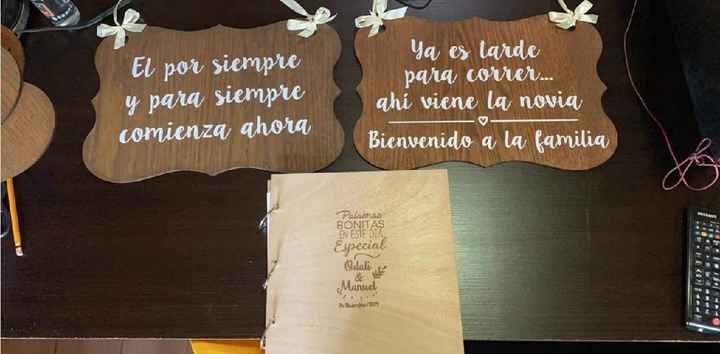 El por siempre
y para siempre
comienza ahora
Ya es tarde
para correr...
ahí viene la novia
Bienvenido a la familia
Palabras
BONITAS
EN ESTE DÍA
Especial
&
Manuel